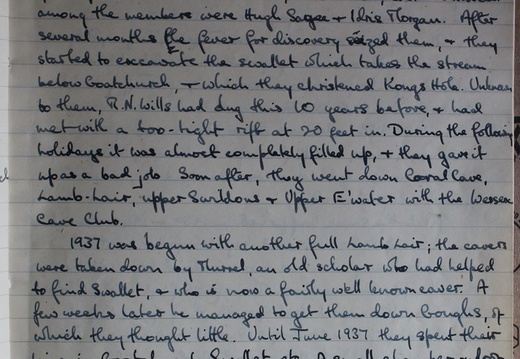 among the members were Hugh Sagee + Idris Morgan. After
several months the fever for discovery seized them, + they
started to excavate the swallet which takes the stream
below Goatchurch, + which they christened Kongs Hole. Unknown
to them, R.N. Wills had dug this 10 years before, + had
met with a too-tight rift at 20 feet in. During the following
holidays it was almost completely filled up, + they gave it
up as a bad job. Soon after, they went down Coral Cave,
Lamb-Lair, upper Swildons + Upper E'water with the Wessex
Cave Club.
1937 was begun with another full Lamb Lair; the cavers
were taken down by Murrel, an old scholar who had helped
to find Swallet, + who is now a fairly well known caver. A
few weeks later he managed to get them down Loughs, of
which they thought little. Until June 1937 they spent their